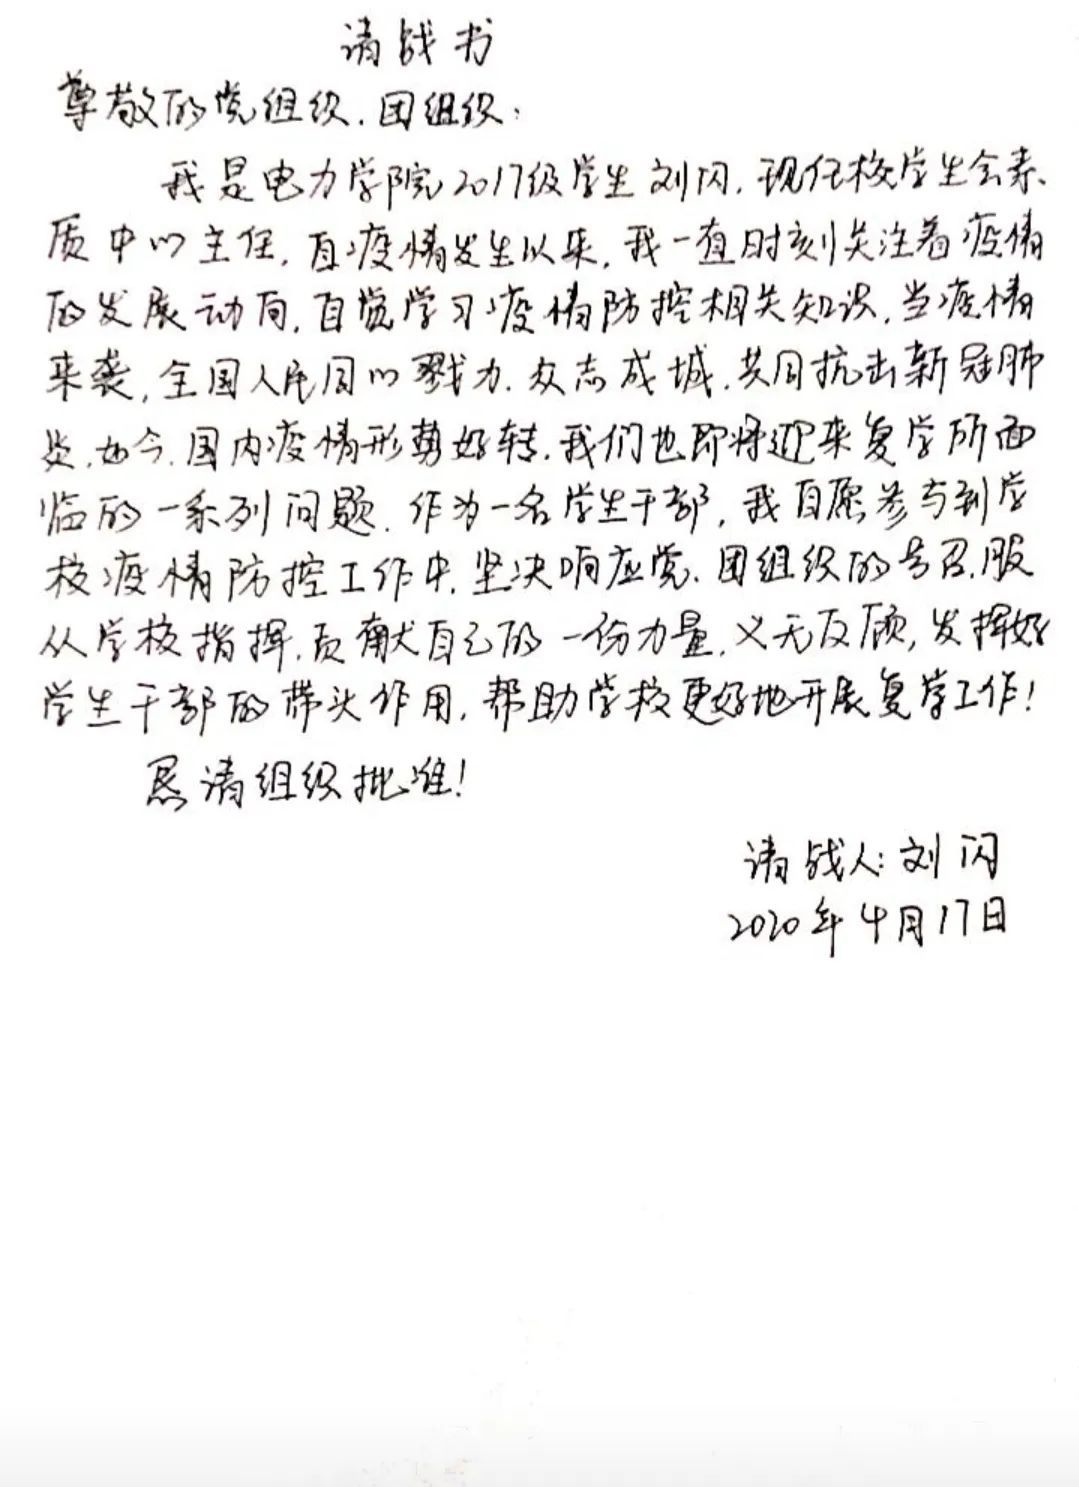 请战书
尊敬的党组织、团组织:
我是电力学院2017级学生刘闪，现任校学生会素
质中心主任，自疫情发生以来，我一直时刻关注着疫情
的发展动向，自觉学习疫情防控相关知识，当疫情
来袭，全国人民同心戮力、众志成城、共同抗击新冠肺
炎，如今，国内疫情形势好转，我们也即将迎来复学所面
临的一系列问题，作为一名学生干部，我自愿参与到学
校疫情防控工作中，坚决响应党、团组织的号召，服
从学校指挥，贡献自己的一份力量，义无反顾，发挥好
学生干部的带头作用，帮助学校更好地开展复学工作！
恳请组织批准！
请战人：刘闪
2020年4月17日